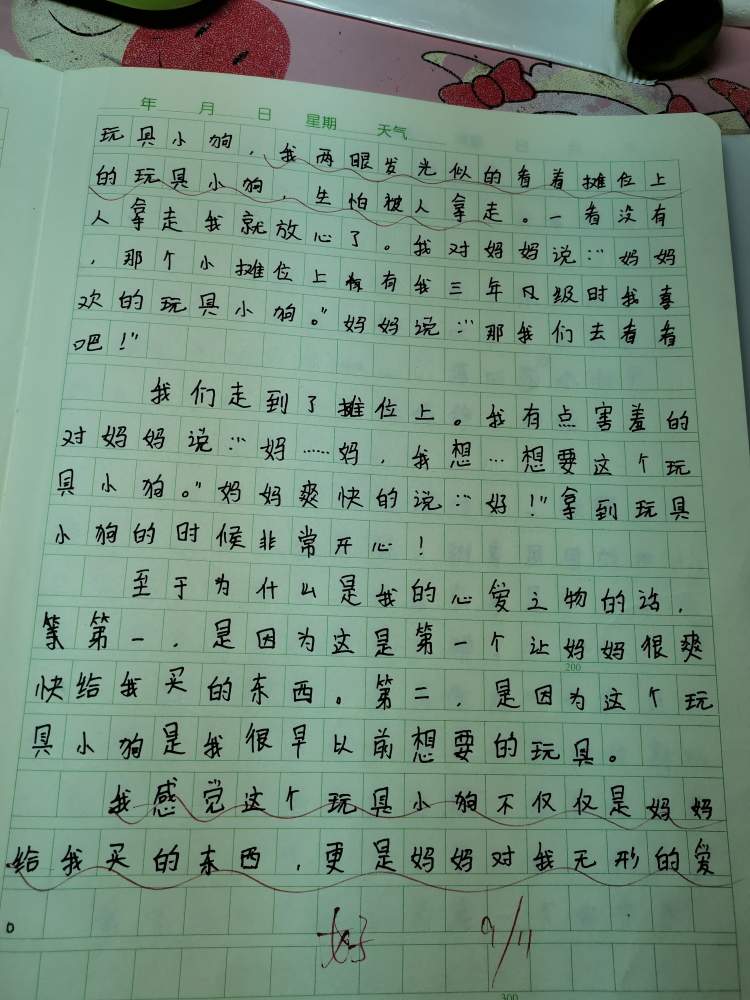 年 月 日 星期 天气
玩具小狗，我两眼发光似的看着摊位上
的玩具小狗，生怕被人拿走。一看没有
人拿走我就放心了。我对妈妈说：“妈妈
，那个小摊位上有我三年级时我喜
欢的玩具小狗。”妈妈说：“那我们去看看
吧！”
我们走到了摊位上。我有点害羞的
对妈妈说：“妈……妈，我想…想要这个玩
具小狗。”妈妈爽快的说：“好！”拿到玩具
小狗的时候非常开心！
至于为什么是我的心爱之物的话，
第一，是因为这是第一个让妈妈很爽
快给我买的东西。第二，是因为这个玩
具小狗是我很早以前想要的玩具。
我感觉这个玩具小狗不仅仅是妈妈
给我买的东西，更是妈妈对我无形的爱
。
好 9/11
200
300